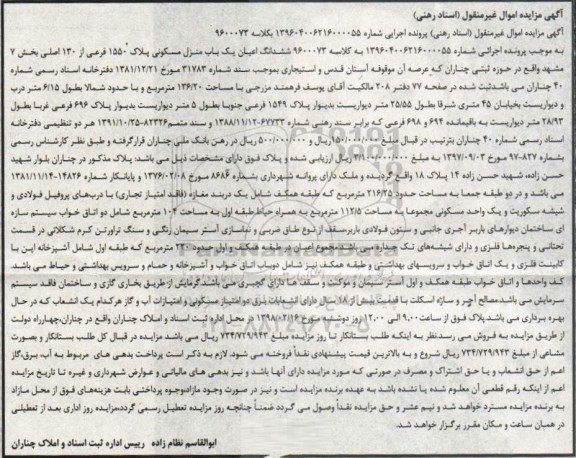 آگهی مزایده اموال غیرمنقول (اسناد رهنی)
آگهی مزایده اموال غیرمنقول (اسناد رهنی) پرونده اجرایی شماره ۱۳۹۶۰۴۰۰۶۲۱۶۰۰۰۰۵۵ بکلاسه ۹۶۰۰۰۷۳
به موجب پرونده اجرائی شماره ۱۳۹۶۰۴۰۰۶۲۱۶۰۰۰۰۵۵ به کلاسه ۹۶۰۰۰۷۳ ششدانگ اعیان یک باب منزل مسکونی پلاک ۱۵۵۰ فرعی از ۱۳۰ اصلی بخش ۷
مشهد واقع در حوزه ثبتی چناران که عرصه آن موقوفه آستان قدس و استیجاری بموجب سند شماره ۳۱۷۸۳ مورخ ۱۳۸۱/۱۲/۲۱ دفترخانه اسناد رسمی شماره
۴۰ چناران می باشد ثبت شده در صفحه ۷۷ دفتر ۲۰۸ مالکیت آقای یوسف فرهمند مزرجی با مساحت ۱۳۶/۲۰ مترمربع و با حدود شمالا بطول ۶/۱۵ متر درب
و دیواریست بخیابان ۴۵ متری شرقا بطول ۲۵/۵۵ متر دیواریست بدیوار پلاک ۱۵۴۹ فرعی جنوبا بطول ۵ متر دیواریست بدیوار پلاک ۶۹۶ فرعی غربا بطول
۲۸/۹۳ متر دیواریست به باقیمانده ۶۹۴ و ۶۹۸ فرعی که برابر سند رهنی شماره ۶۷۷۳۳-۱۳۸۸/۱۱/۱۲ و سند متمم ۸۲۳۲۶-۱۳۹۱/۱۰/۲۵ هر دو تنظیمی دفترخانه
اسناد رسمی شماره ۴۰ چناران بترتیب در قبال مبلغ ۱۵۰/۰۰۰/۰۰۰ ریال و ۵۰۰/۰۰۰/۰۰۰ ریال در رهن بانک ملی چناران قرارگرفته و طبق نظر کارشناس رسمی
بشماره ۸۲۷-۹۷ مورخ ۱۳۹۷/۰۹/۰۳ به مبلغ ۴/۱۰۰/۰۰۰/۰۰۰ ریال ارزیابی شده و پلاک فوق دارای مشخصات ذیل می باشد: پلاک مذکور در چناران بلوار شهید
حسن زاده، شهید حسن زاده ۱۴ پلاک ۱۸ واقع گردیده و ملک دارای پروانه شهرداری بشماره ۸۶۸۶ مورخ ۱۳۷۶/۰۲/۰۸ و پایانکار شماره ۱۴۸۲۶-۱۳۸۱/۱۱/۱۴
می باشد و در دو طبقه جمعا به مساحت حدود ۲۱۶/۲۵ مترمربع که طبقه همکف شامل یک دربند مغازه (فاقد امتیاز تجاری) با درب‌های پروفیل فولادی و
شیشه سکوریت و یک واحد مسکونی مجموعا به مساحت ۱۱۲/۵ مترمربع به همراه حیاط طبقه اول به مساحت ۱۰۴ مترمربع شامل دو اتاق خواب سیستم سازه
ای ساختمان دیوارهای باربر آجری جانبی و ستون فولادی باربر، سقف از نوع طاق ضربی و نماسازی آستر سیمان رنگی و سنگ تراورتن کرم شکلاتی در قسمت
تحتانی و پنجره‌ها فلزی و دارای شیشه‌های تک جداره می باشد. مجموع اعیان در طبقه همکف و اول حدود ۲۲۰ مترمربع که طبقه اول شامل آشپزخانه اپن با
کابینت فلزی و یک اتاق خواب و سرویسهای بهداشتی و طبقه همکف نیز شامل دوباب اتاق خواب و آشپزخانه و حمام و سرویس بهداشتی و حیاط می باشد.
کف واحدها و اتاق خواب طبقه همکف و اول آستر سیمان و موکت و سقف ها دارای گچبری می باشد. گرمایش از طریق بخاری گازی و ساختمان فاقد سیستم
سرمایش می باشد. مصالح آجر و سازه اسکلت با قدمت بیش از ۱۸ سال دارای انشعابات برق دو امتیاز مسکونی و امتیازات آب و گاز هرکدام یک انشعاب که در حال
بهره برداری می باشد. پلاک فوق از ساعت ۹.۰۰ الی ۱۲.۰۰ روز دوشنبه مورخ ۱۳۹۸/۰۲/۱۶ در محل اداره ثبت اسناد و املاک چناران واقع در چناران، چهارراه دولت
از طریق مزایده به فروش می رسد. نظر به اینکه طلب بستانکار تا روز مزایده مبلغ ۷۳۴/۷۲۹/۹۴۳ ریال می باشد مزایده در قبال کل طلب بستانکار و بصورت
مشاعی از مبلغ ۷۳۴/۷۲۹/۹۴۳ ریال شروع و به بالاترین قیمت پیشنهادی نقداً فروخته می شود. لازم به ذکر است پرداخت بدهی های مربوط به آب، برق، گاز
اعم از حق انشعاب و یا حق اشتراک و مصرف در صورتی که مورد مزایده دارای آنها باشد و نیز بدهی های مالیاتی و عوارض شهرداری و غیره تا تاریخ مزایده
اعم از اینکه رقم قطعی آن معلوم شده یا نشده باشد به عهده برنده مزایده است و نیز در صورت وجود مازاد، وجوه پرداختی بابت هزینه‌های فوق از محل مازاد
به برنده مزایده مسترد خواهد شد و نیم عشر و حق مزایده نقداً وصول می گردد ضمناً چنانچه روز مزایده تعطیل رسمی گردد، مزایده روز اداری بعد از تعطیلی
در همان ساعت و مکان مقرر برگزار خواهد شد.
ابوالقاسم نظام زاده رییس اداره ثبت اسناد و املاک چناران